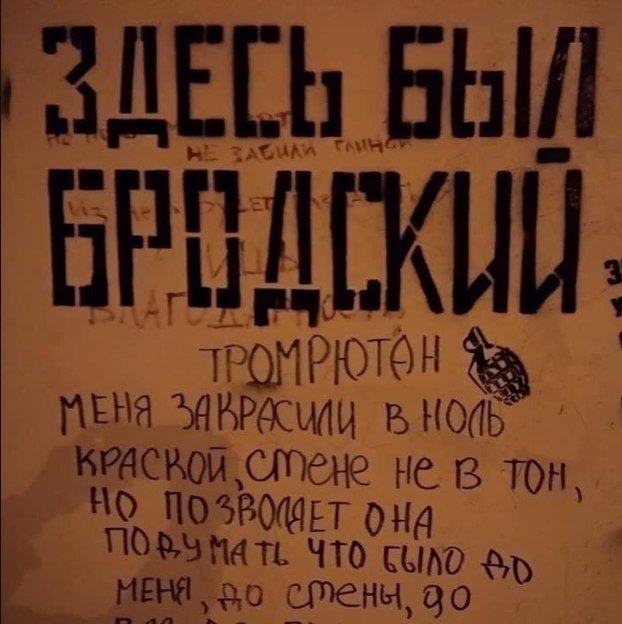 ЗДЕСЬ БЫЛ
НЕ ЗАБИЛИ ГЛИНОЙ
БРОДСКИЙ
ЛИШЬ
БЛАГОДАРНОСТЬ
ТРОМРЮТАН
МЕНЯ ЗАКРАСИЛИ В НОЛЬ
КРАСКОЙ, СТЕНЕ НЕ В ТОН,
НО ПОЗВОЛЯЕТ ОНА
ПОДУМАТЬ ЧТО БЫЛО ДО
МЕНЯ, ДО СТЕНЫ, ДО